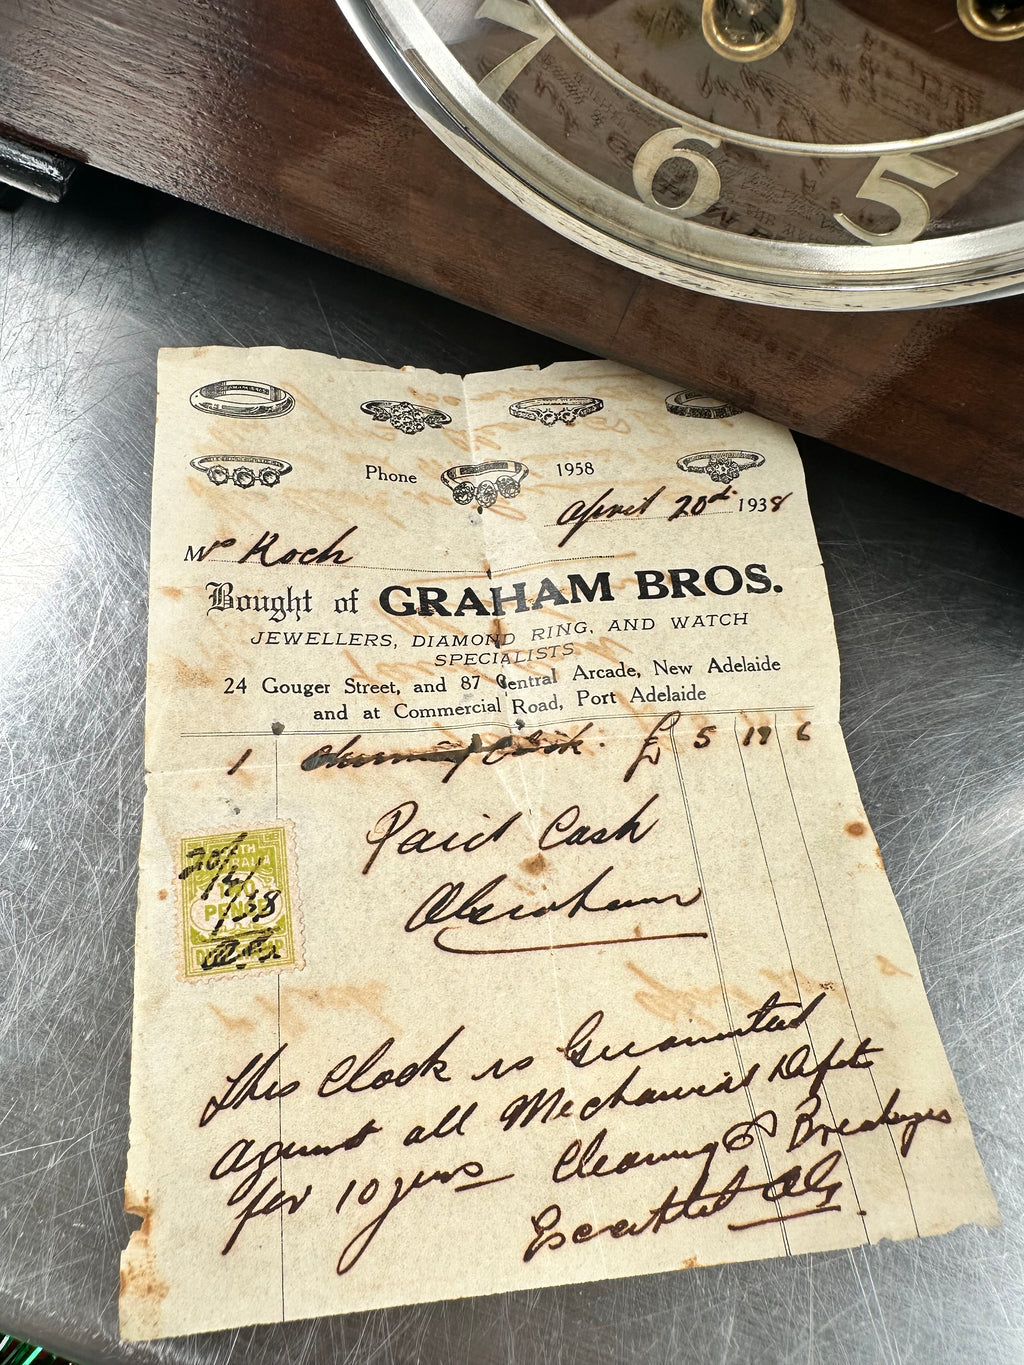 7 6 5
Phone 1958
April 20th 1938
Mrs Koch
Bought of GRAHAM BROS.
JEWELLERS, DIAMOND RING, AND WATCH
SPECIALISTS
24 Gouger Street, and 87 Central Arcade, New Adelaide
and at Commercial Road, Port Adelaide
1 Clock. £ 5 19 6
Paid Cash
20/
/4/
TWO
/38
PENCE
This Clock is Guaranteed
against all Mechanical Defects
for 10 years Cleaning & Breakages
Excepted AG.